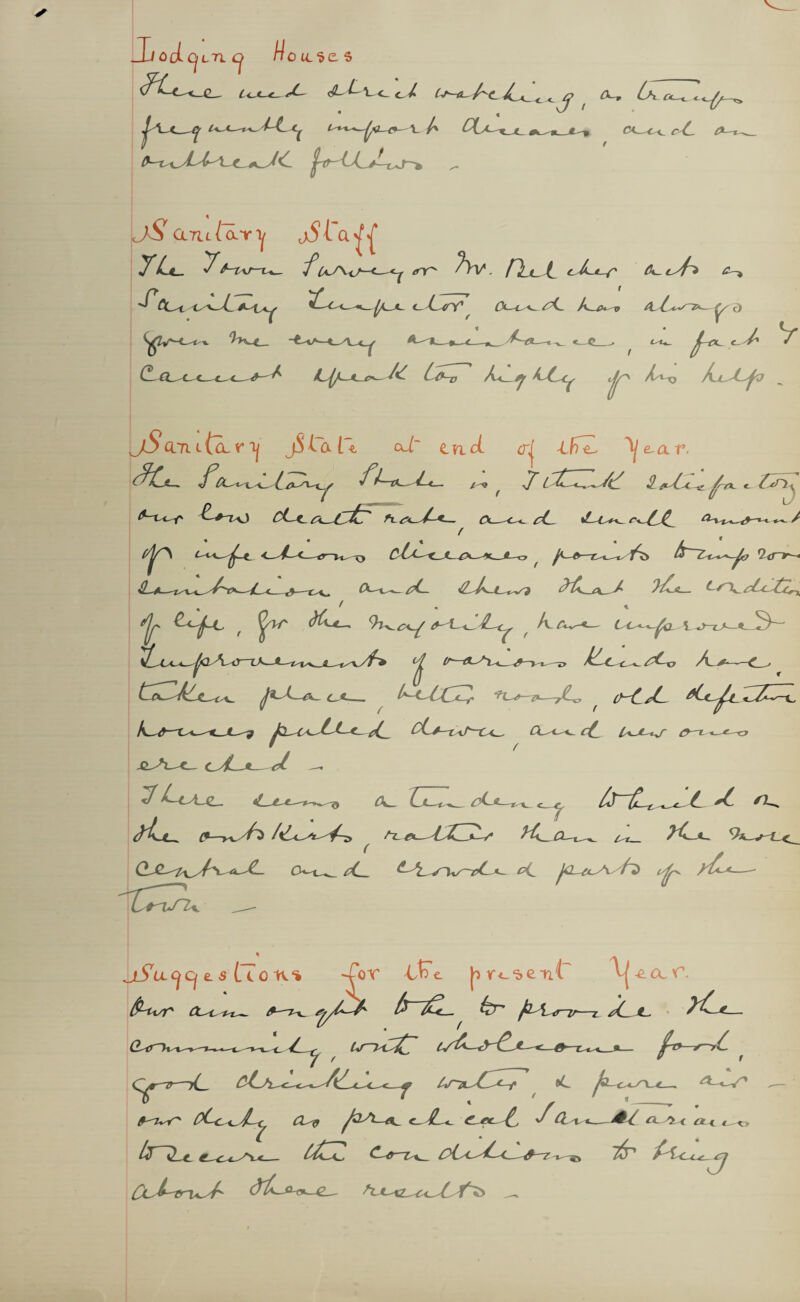 Lodging Houses
These need strict watching, as tramps
frequently import disease, and an
outbreak follows
Sanitary Staff
The Town Surveyor Mr. Net cher acts as
Sanitary Inspector, and has always
given me every assistance, in fact I
cannot speak too highly of his help
Sanitary State at end of the Year.
The Sanitary State is, I think satisfactory
Our low death rate, and small amount
of infectious diseases, points to improved
sanitation and shews that the condition
of life, for the majority, have improved
Improvements of various kinds have
taken place, better roads, old defective
houses pulled down and new ones
erected
There seems a tendency to build on
the outskirts, rather than in the more
central and crowded parts of the
Town
Suggestions for the present Year.
Our aim ought to be, to provide the
community, with wholesome food,
good drinking water, & pure air
our duty as practical Sanitarians
to see the conditions to bring
about these results